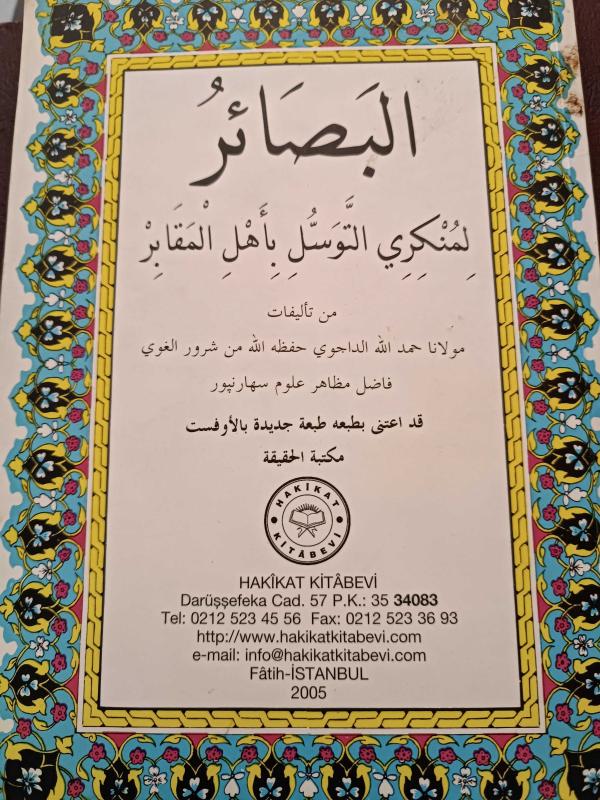 البَصَائرُ
لِمُنْكِرِي التَّوَسُّلِ بِأَهْلِ الْمَقَابِرْ
من تأليفات
مولانا حمد الله الداجوي حفظه الله من شرور الغوي
فاضل مظاهر علوم سهارنپور
قد اعتنى بطبعه طبعة جديدة بالأوفست
مكتبة الحقيقة
HAKİKAT
KİTÂBEVİ
HAKÎKAT KİTÂBEVİ
Darüşşefeka Cad. 57 P.K.: 35 34083
Tel: 0212 523 45 56 Fax: 0212 523 36 93
http://www.hakikatkitabevi.com
e-mail: info@hakikatkitabevi.com
Fâtih-İSTANBUL
2005